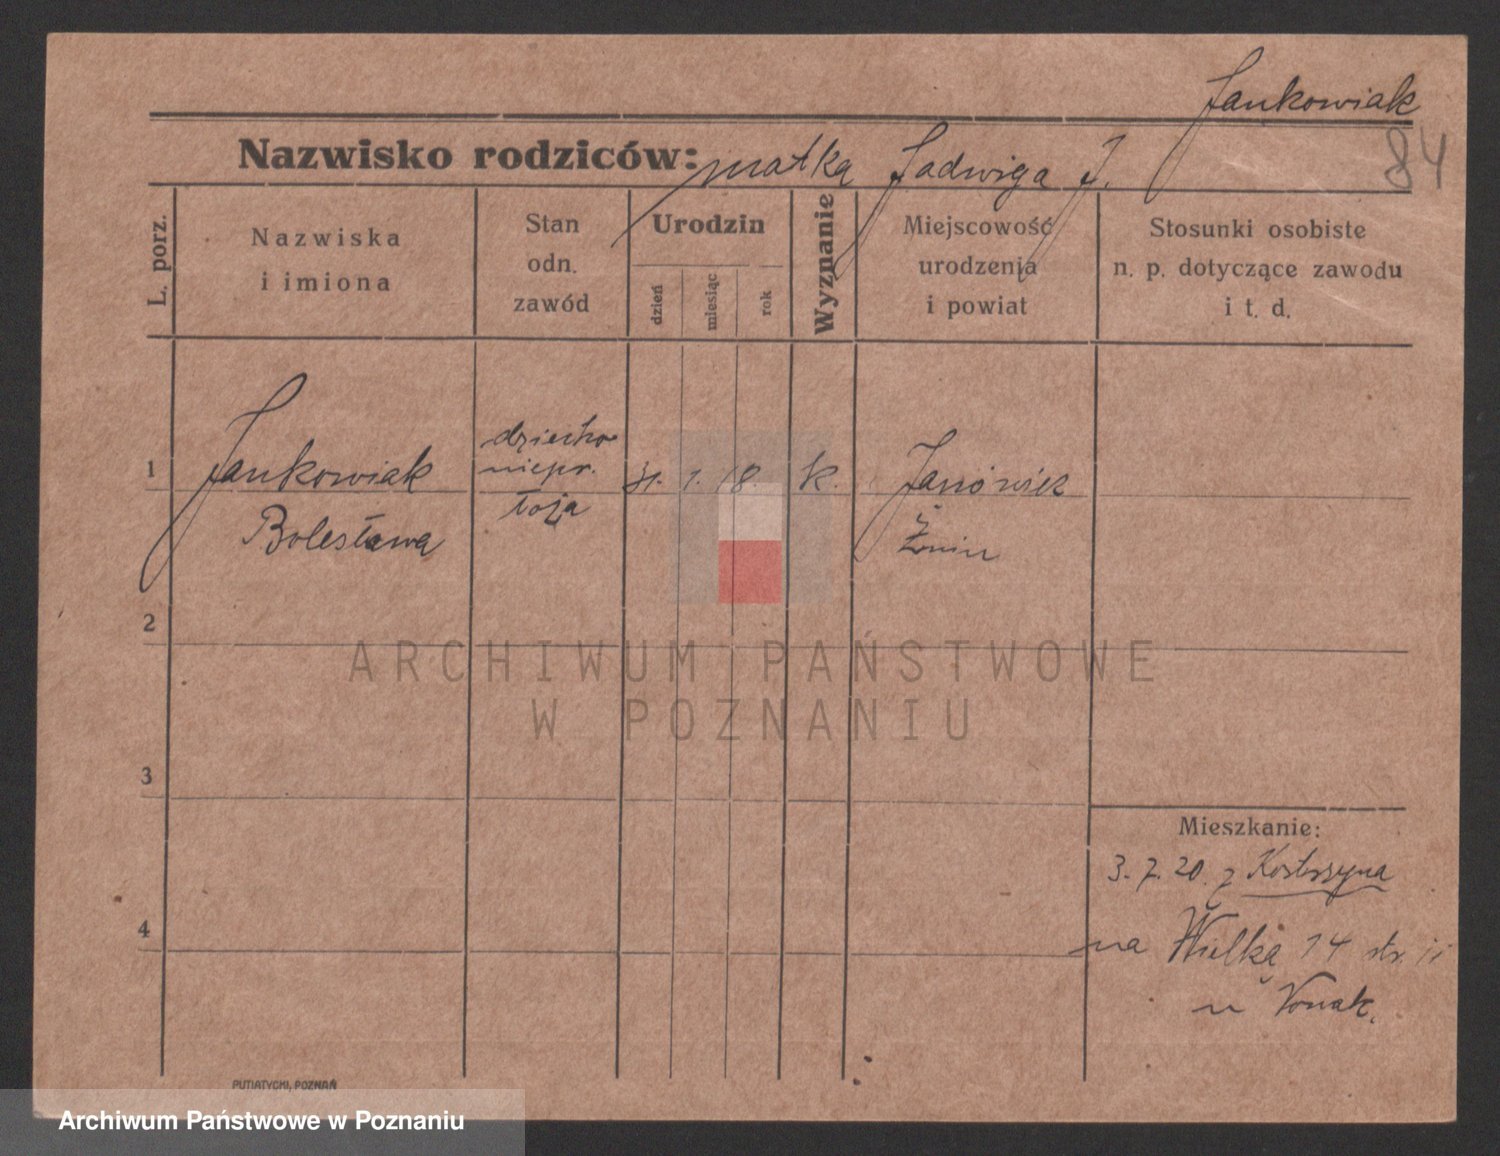 Jankowiak
84
Nazwisko rodziców: matka Jadwiga J.
L. porz.
Nazwiska
i imiona
Stan
odn.
zawód
Urodzin
dzień
miesiąc
rok
Wyznanie
Miejscowość
urodzenia
i powiat
Stosunki osobiste
n. p. dotyczące zawodu
i t. d.
1
Jankowiak
Bolesława
dziecko
niepr.
łoża
31. 1. 18.
k.
Janówiec
Żnin
2
ARCHIWUM PAŃSTWOWE
W POZNANIU
3
Mieszkanie:
3. 7. 20. z Kostrzyna
4
na Wielką 14 str. ii
u Nowak.
PUTIATYCKI, POZNAŃ
Archiwum Państwowe w Poznaniu